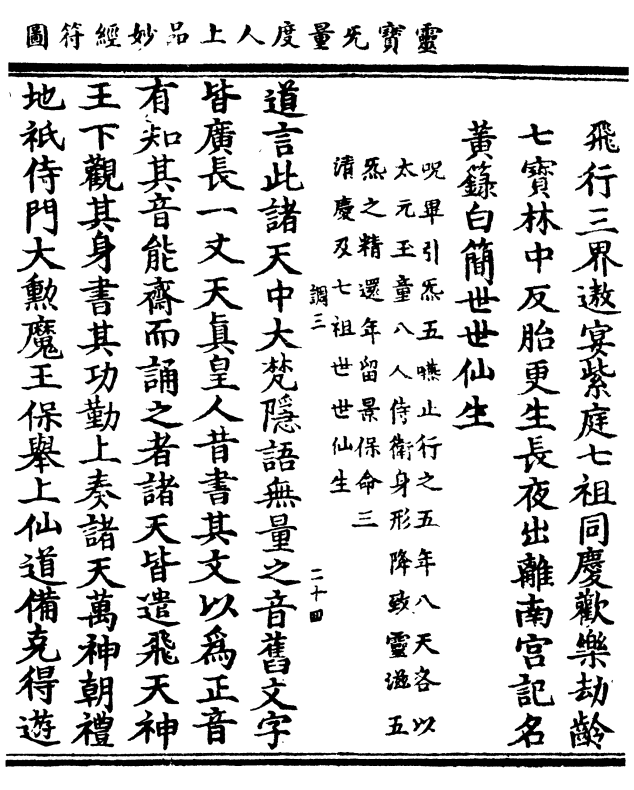 靈寶旡量度人上品妙經符圖
飛行三界遨宴紫庭七祖同慶歡樂劫齡
七寶林中反胎更生長夜出離南宮記名
黃籙白簡世世仙生
呪畢引炁五嚥止行之五年八天各以
太元玉童八人侍衛身形降致靈滋五
炁之精還年留景保命三
清慶及七祖世世仙生
調三 二十四
道言此諸天中大梵隱語無量之音舊文字
皆廣長一丈天眞皇人昔書其文以爲正音
有知其音能齋而誦之者諸天皆遣飛天神
王下觀其身書其功勤上奏諸天萬神朝禮
地祇侍門大勳魔王保舉上仙道備克得遊